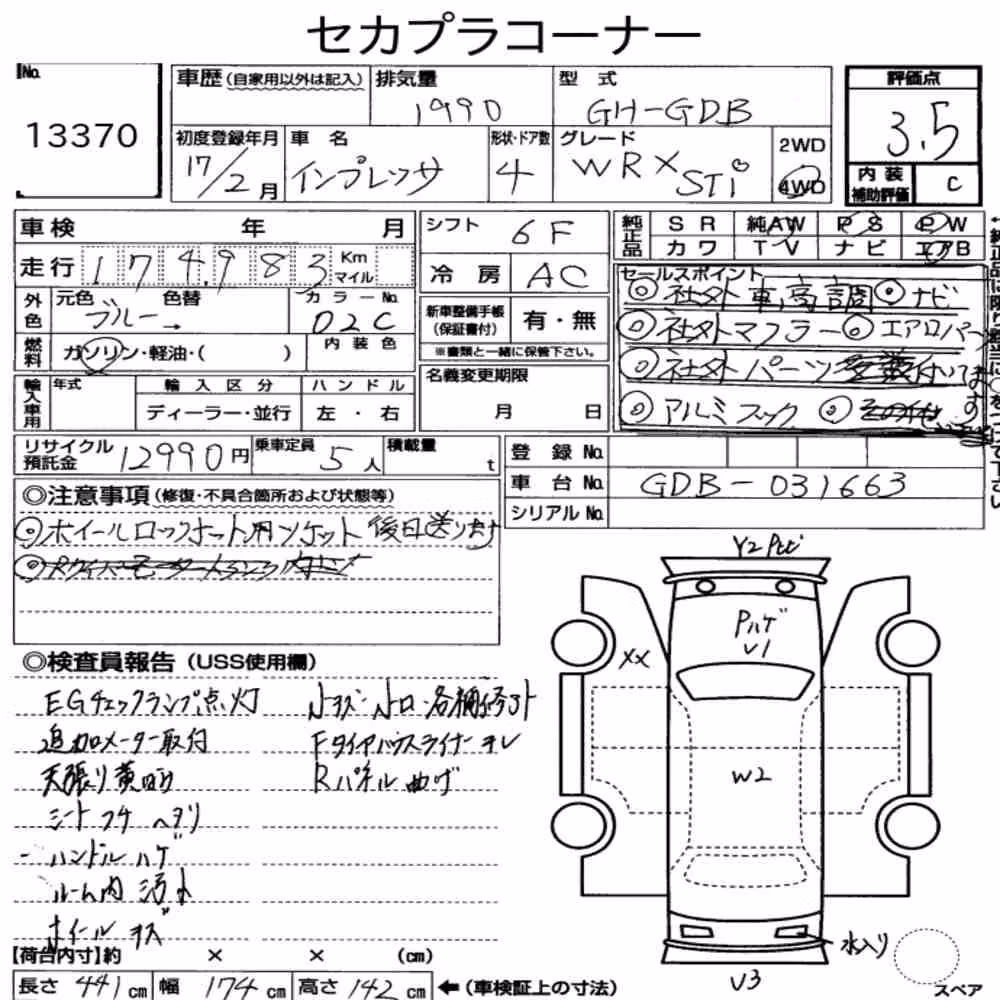 セカプラコーナー
No.
13370
車歴(自家用以外は記入)
排気量
1990
型 式
GH-GDB
評価点
3.5
初度登録年月
17/2月
車 名
インプレッサ
形状・ドア数
4
グレード
WRX STi
2WD
4WD
内装補助評価
C
車検 年 月
シフト
6F
純正品
SR 純AW PS PW
カワ TV ナビ エアB
走行 174,983 Km マイル
冷 房
AC
セールスポイント
◎社外車高調 ◎ナビ
◎社外マフラー ◎エアロパーツ
◎社外パーツ
◎アルミフック ◎
外色
元色 色替
ブルー→
カラーNo.
02C
新車整備手帳(保証書付)
有・無
※書類と一緒に保管下さい。
燃料
ガソリン・軽油・( )
内 装 色
輸入車用
年式
輸 入 区 分
ディーラー・並行
ハ ン ド ル
左 ・ 右
名義変更期限
月 日
リサイクル預託金
12990円
乗車定員
5人
積載量
t
登 録 No.
車 台 No.
GDB-031663
シリアルNo.
◎注意事項(修復・不具合箇所および状態等)
◎ホイールロックナット用ソケット後日送ります
Y2 Pヒビ
Pハゲ
V1
XX
W2
水入り
V3
スペア
◎検査員報告(USS使用欄)
EGチェックランプ点灯
追加メーター取付
天張り黄ばみ
シートコゲ ヘタリ
ハンドルハゲ
ルーム内 汚れ
ホイールキズ
小キズ・小凹 各補修跡
Fタイヤハウスライナーズレ
Rパネル曲げ
【荷台内寸】約 × × (cm)
長さ 441cm 幅 174cm 高さ 142cm ←(車検証上の寸法)